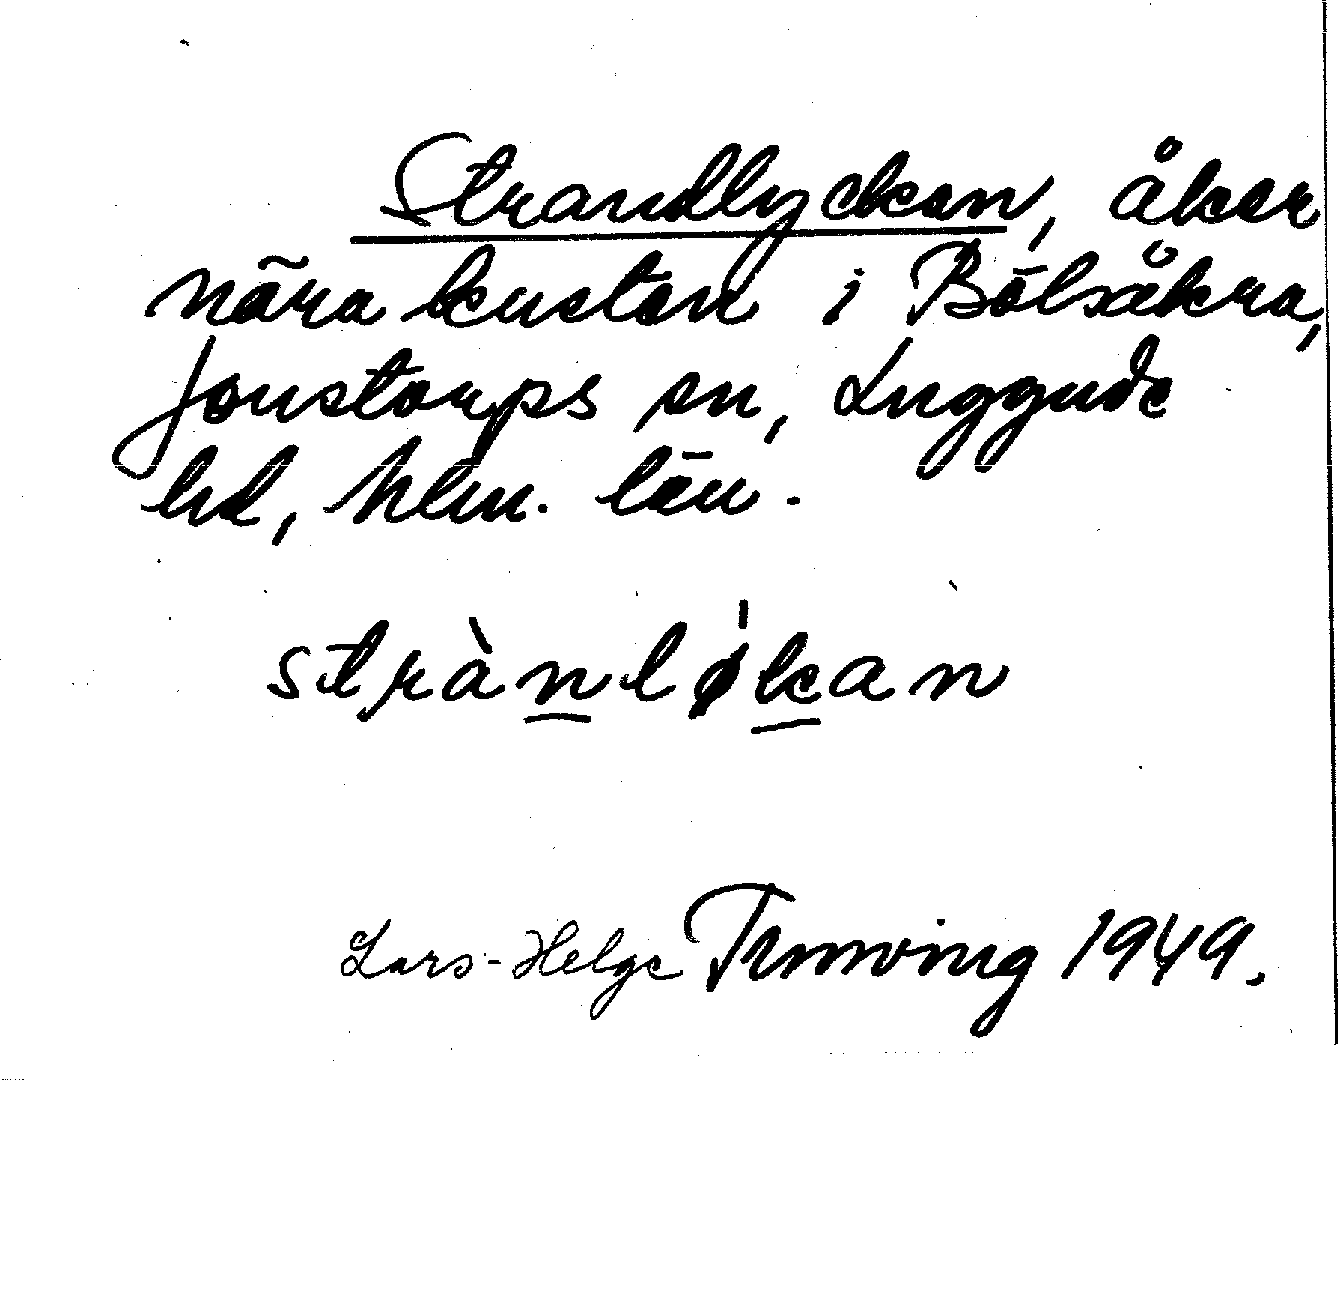 Strandlyckan, åker
nära kusten i Bölsåkra,
Jonstorps sn, Luggude
hd, Mlm. län.
strànløkan
Lars-Helge Trunving 1949.